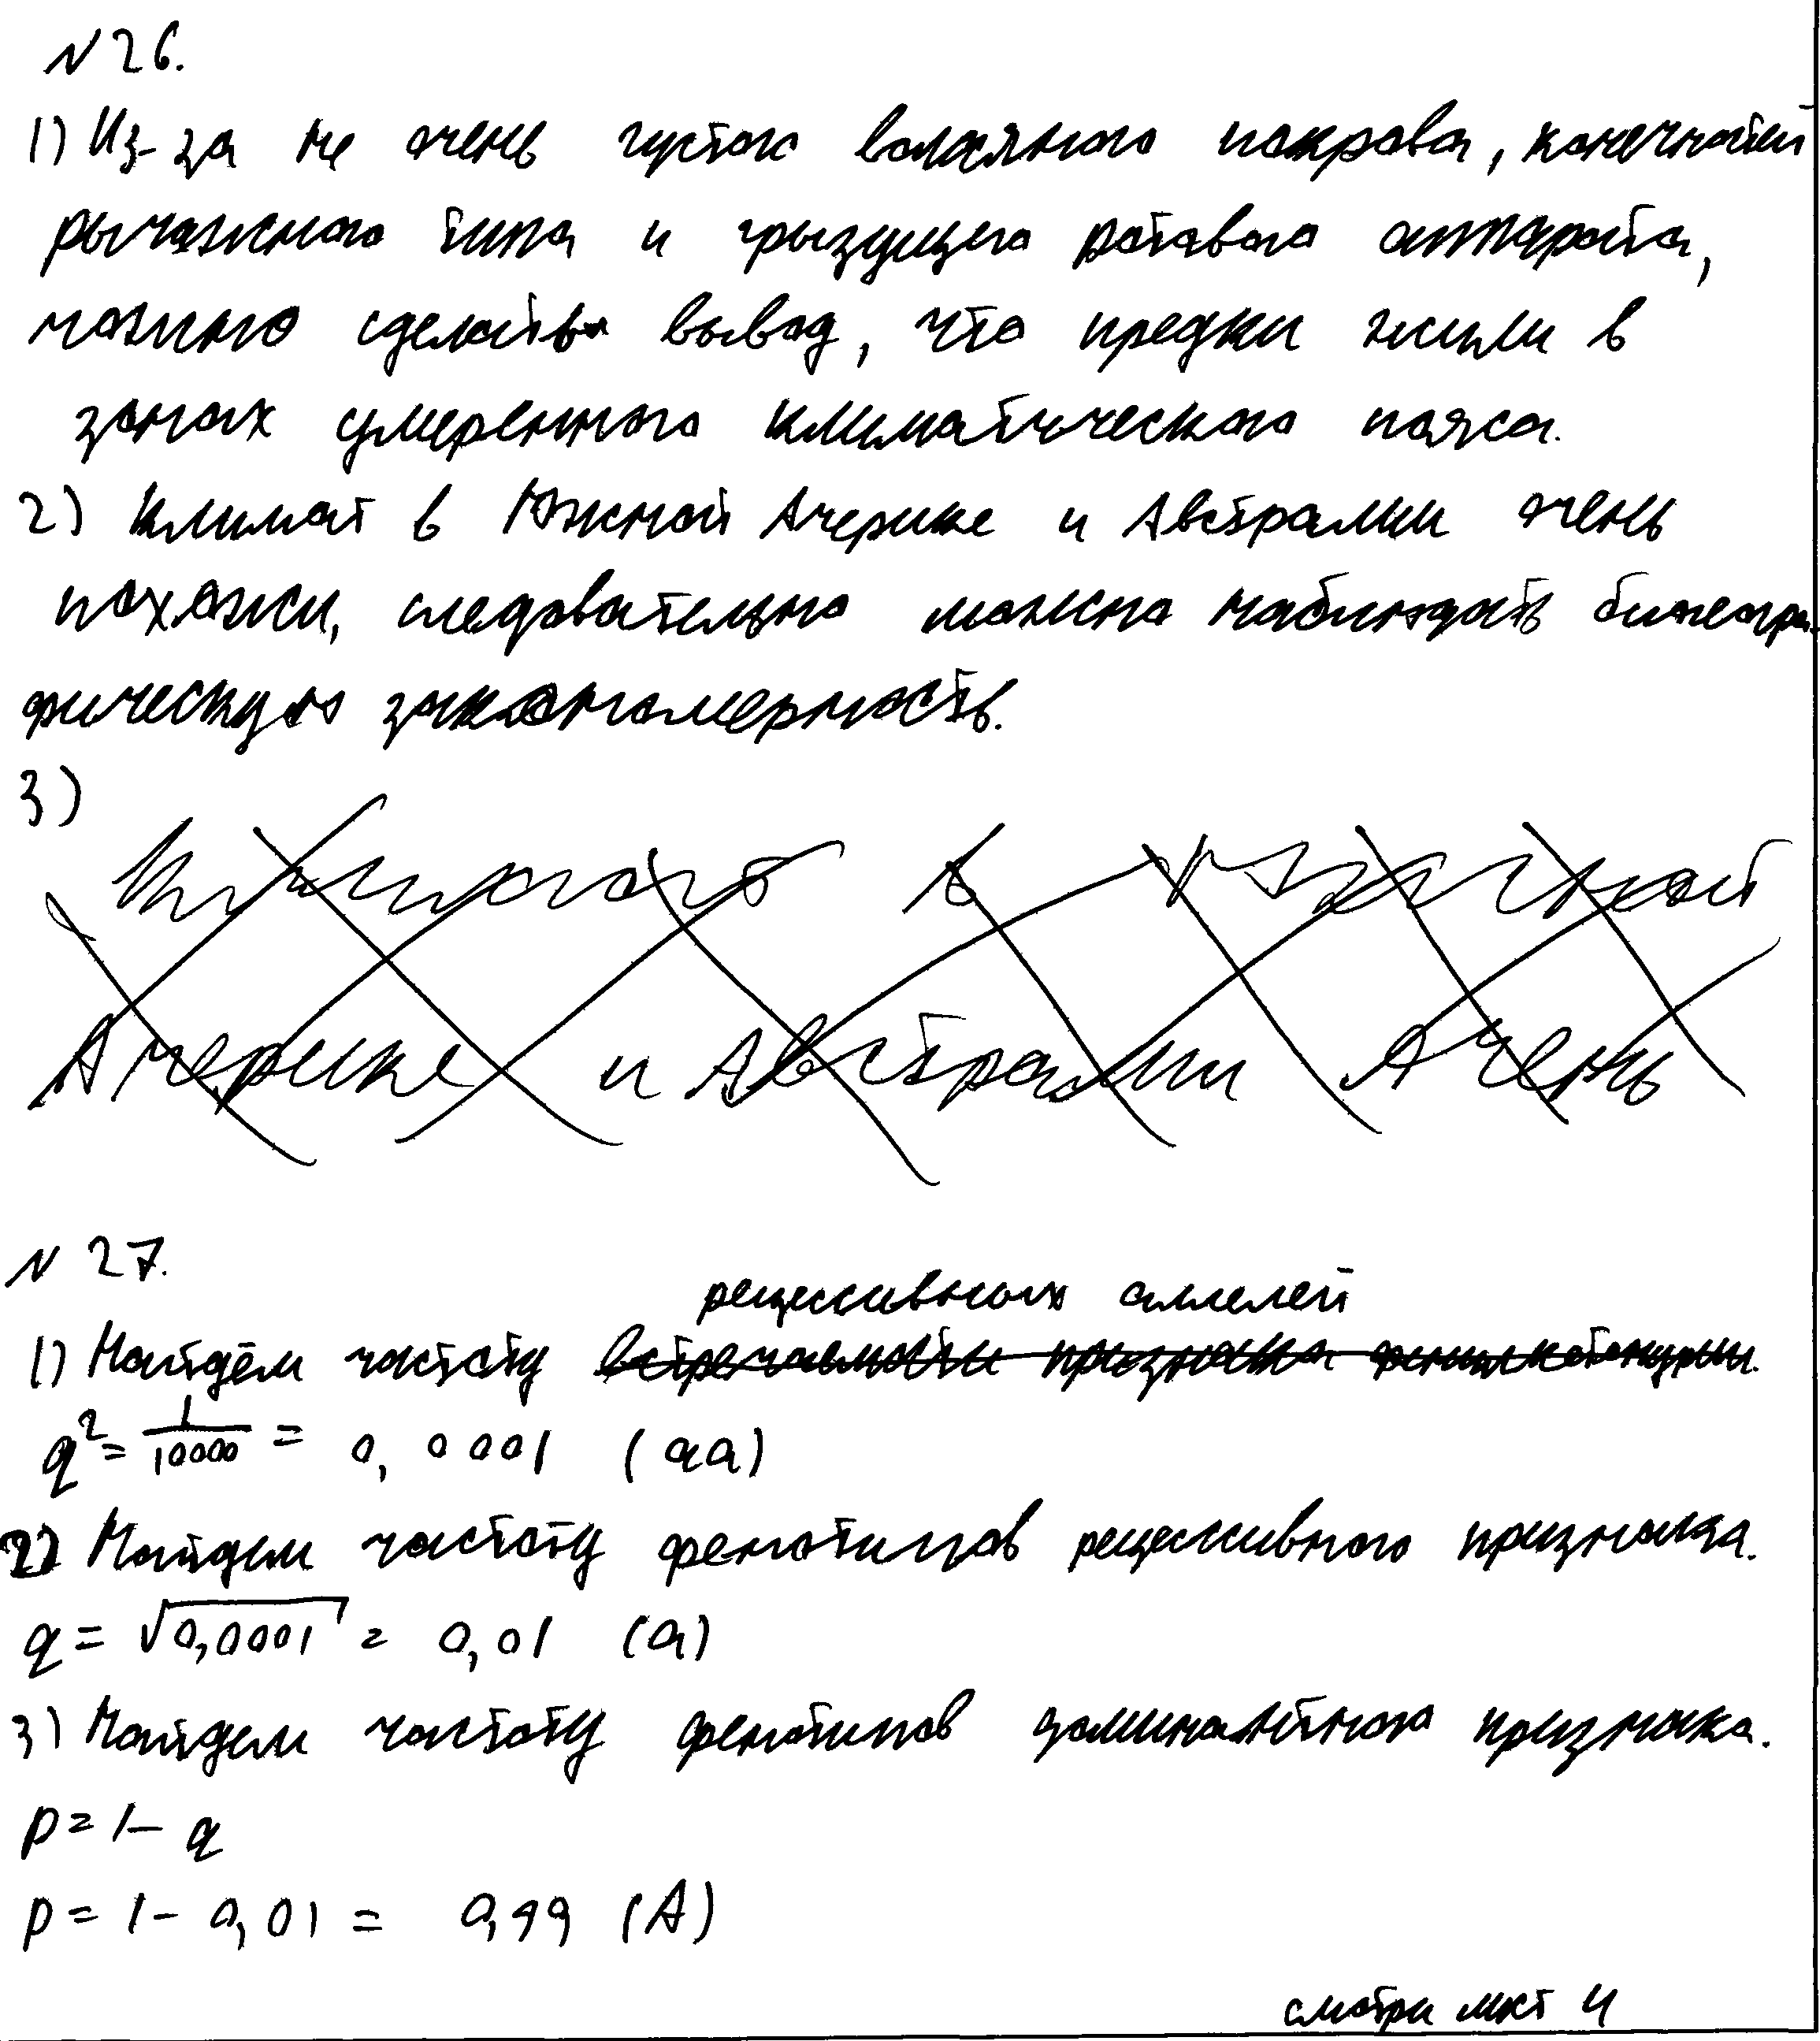 № 26.
1) Из-за не очень густого волосяного покрова, конечностей
рычажного типа и грызущего ротового аппарата,
можно сделать вывод, что предки жили в
зонах умеренного климатического пояса.
2) Климат в Южной Америке и Австралии очень
похожи, следовательно можно наблюдать биогеогра-
фическую закономерность.
3)
Климат в Южной
Америке и Австралии очень
№ 27.
рецессивных аллелей
1) Найдём частоту встречаемости признака фенилкетонурии.
q² = 1/10000 = 0,0001 (aa)
2) Найдем частоту фенотипов рецессивного признака.
q = √0,0001 = 0,01 (a)
3) Найдем частоту фенотипов доминантного признака.
p = 1 - q
p = 1 - 0,01 = 0,99 (A)
смотри лист 4